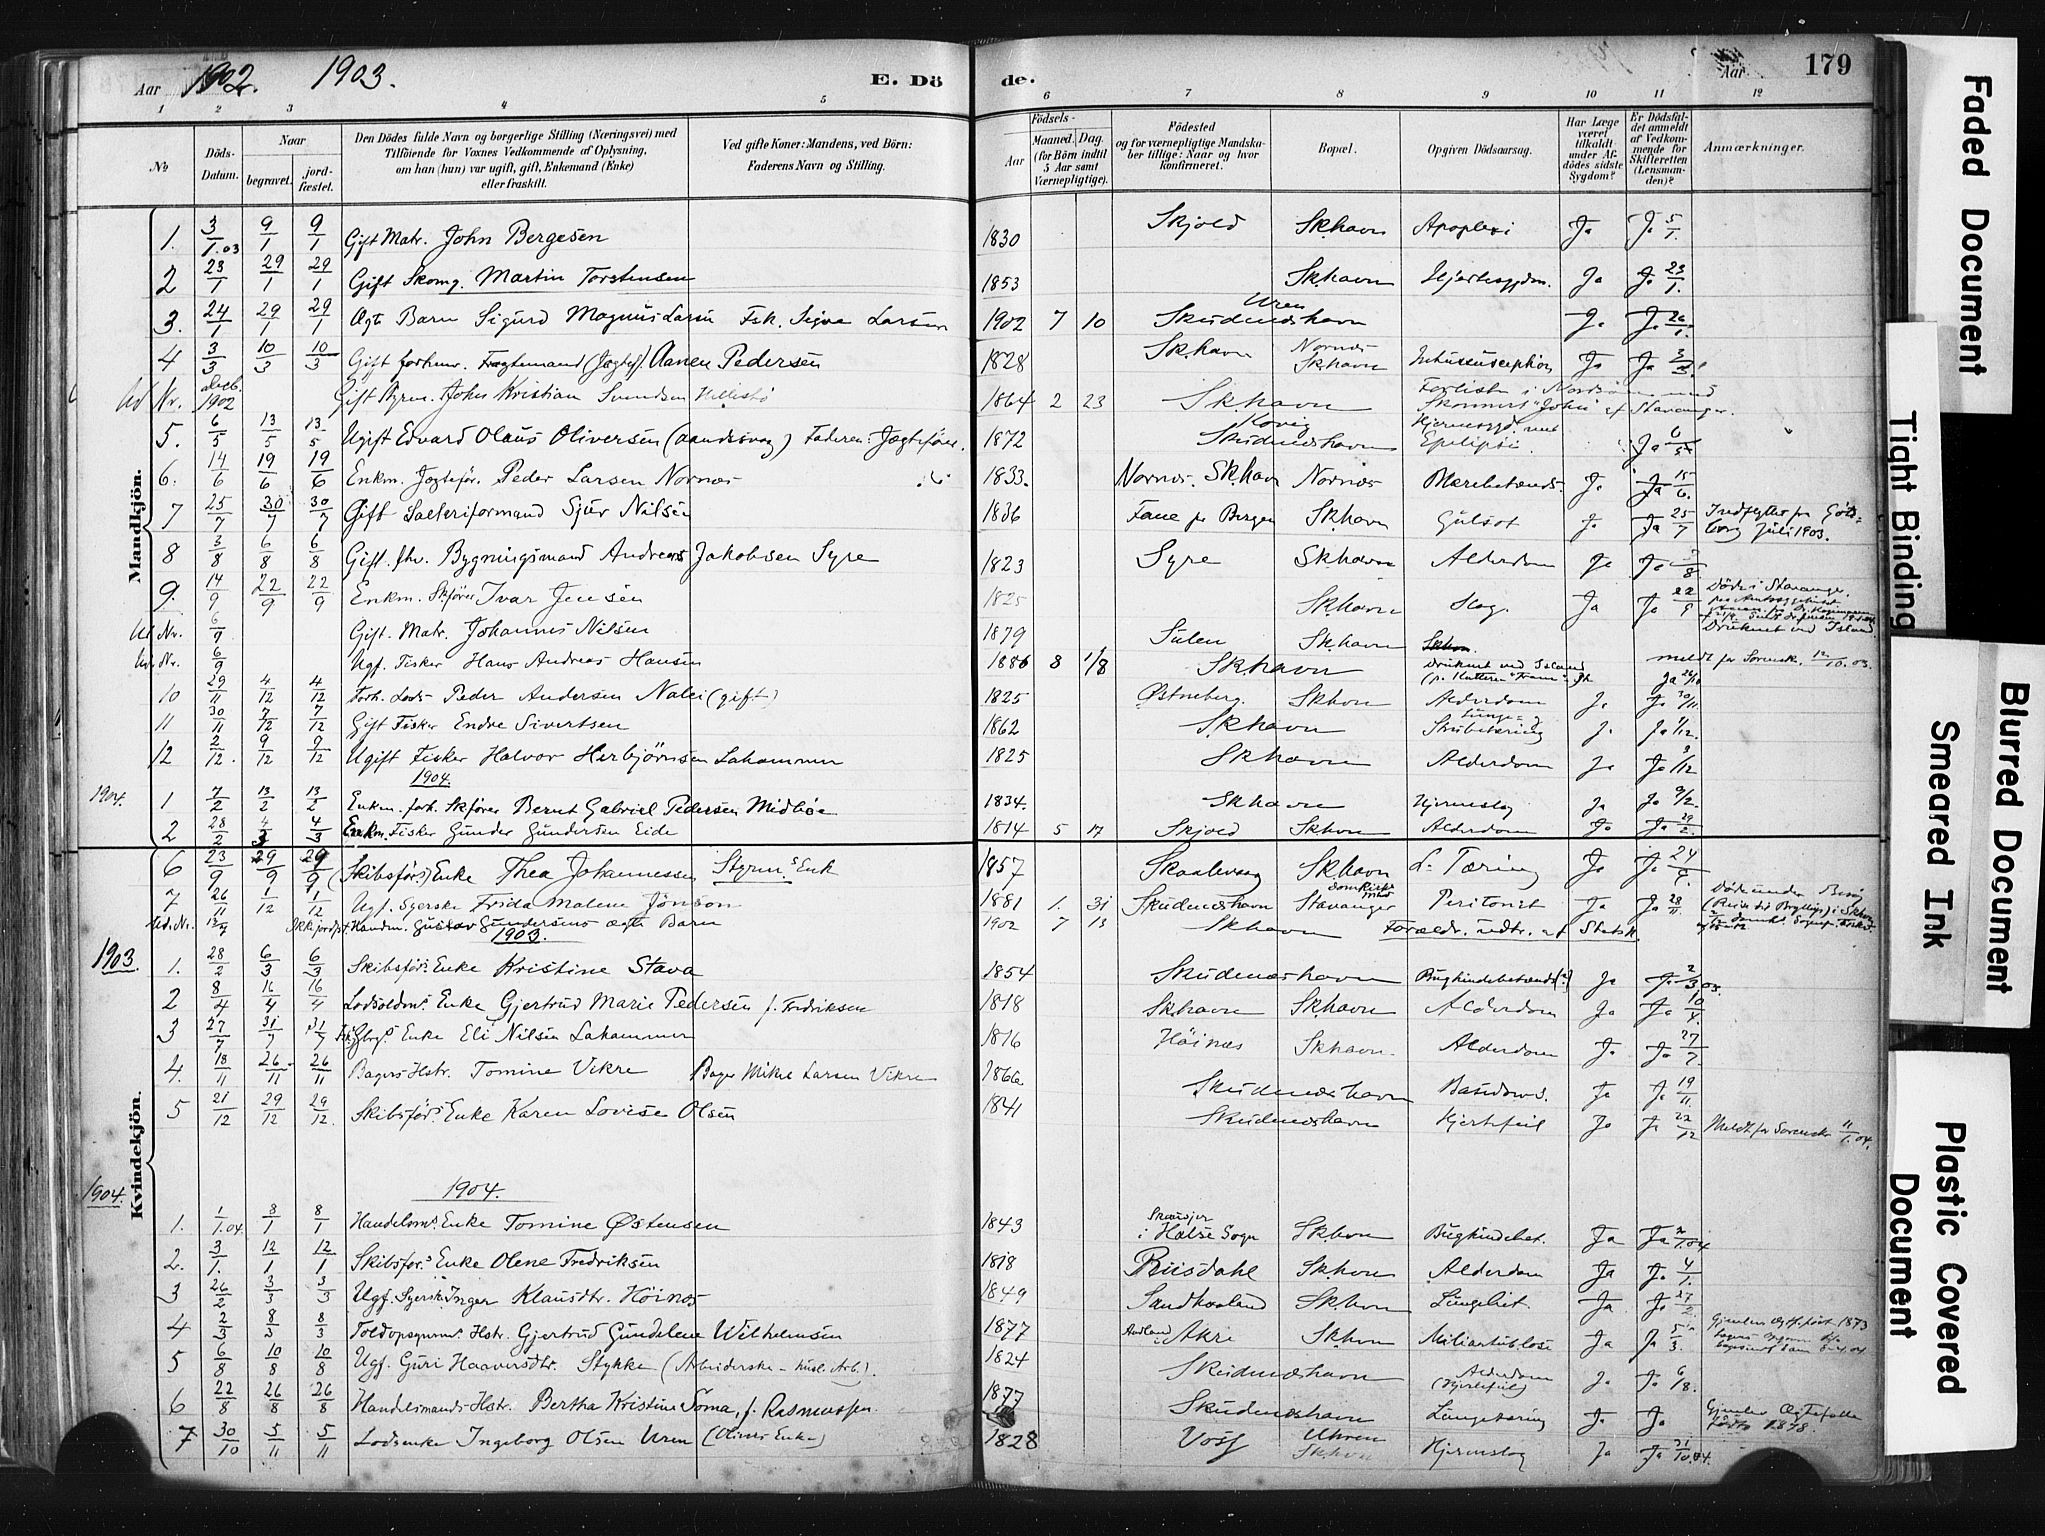 Aar 1902. 1903. E. Döde. Aar 179
1 2 3 4 5 6 7 8 9 10 11 12
№
Döds-Datum.
Naar
begravet.
jord-fæstet.
Den Dödes fulde Navn og borgerlige Stilling (Næringsvei) med
Tilföiende for Voxnes Vedkommende af Oplysning,
om han (hun) var ugift, gift, Enkemand (Enke)
eller fraskilt.
Ved gifte Koner: Mandens, ved Börn:
Faderens Navn og Stilling.
Födsels-
Aar
Maaned. Dag.
(for Börn indtil
5 Aar samt
Værnepligtige).
Födested
og for værnepligtige Mandska-
ber tillige: Naar og hvor
konfirmeret.
Bopæl.
Opgiven Dödsaarsag.
Har Læge
været
tilkaldt
under Af-
dödes sidste
Sygdom?
Er Dödsfal-
det anmeldt
af Vedkom-
mende for
Skifteretten
(Lensman-
den)?
Anmærkninger.
Mandkjön.
1. 3/1.03 9/1 9/1 Gift Matr. John Bergesen 1830 Skjold Sk.havn Apoplexi Ja Ja 5/1.
2 23/1 29/1 29/1 Gift Skomg. Martin Torstensen 1853 Sk.havn Hjertesygdm. Ja Ja 23/1.
3. 24/1 29/1 29/1 Ægte Barn Sigurd Magnus Larsen Fsk. Sigva Larsen 1902 7 10 Skudeneshavn Uren Ja Ja 26/1.
4 3/3 10/3 10/3 Gift forhenv. Aanen Pedersen 1828 Sk.havn Nornes Sk.havn Intussusception Ja Ja 3/3
Ud Nr. Decb. 1902 Gift Styrm. John Kristian Svendsen 1864 2 23 Sk.havn Forliste i Nordsöen med Skonnert "John" af Stavanger.
5. 6/5 13/5 13/5 Ugift Edvard Olaus Oliversen (aandssvag) Faderen: Jægteför. 1872 Skudeneshavn Epilepsi. Ja 6/5
6. 14/6 19/6 19/6 Enkm. Jægtefør. Peder Larsen Nornes 1833. Nornes. Sk.havn Nornes Ja Ja 15/6.
7 25/7 30/7 30/7 Gift Salteriformand Sjur Nilsen 1836 Fane pr Bergen Sk.havn Gulsot Ja Ja 25/7 Indflyttet fra Göteborg Juli 1903.
8 3/8 6/8 6/8 Gift. fhv. Bygningsmand Andreas Jakobsen Syre 1823 Syre Sk.havn Alderdom Ja Ja
9 14/9 22/9 22/9 Enkm. Skfører Ivar Jensen 1825 Sk.havn Slag. Ja Ja 22/9 Döde i Stavanger.
Ud. Nr. 6/9 Gift. Matr. Johannes Nilsen 1879 Sulen Sk.havn Druknet ved Island
Ud. Nr. 6/9 Ugf. Fisker Hans Andreas Hansen 1886 8 1/8 Sk.havn Druknet ved Island meldt for Sorensk. 12/10.03.
10 29/11 4/12 4/12 Forh. Lods Peder Andersen Nalei (gift) 1825 Sk.havn Alderdom Ja Ja 30/11.
11 30/11 7/12 7/12 Gift Fisker Endre Sivertsen 1862 Sk.havn Ja Ja 1/12.
12 2/12. 9/12 9/12 Ugift Fisker Halvor Herbjörnsen Lahammer 1825 Sk.havn Alderdom Ja Ja
1904.
1904. 1 7/2 13/2 13/2 Enkm. forh. Skfører Bernt Gabriel Pedersen Midböe 1834. Sk.havn Hjerneslag Ja Ja 9/2.
2 28/2 4/3 4/3 Enkm. Fisker Gunder Gundersen Eide 1814 5 17 Skjold Sk.havn Alderdom Ja Ja 29/2.
Kvindekjön.
6 23/9 29/9 29/9 (Skibsförs) Enke Thea Johannessen Styrm.s Enk 1857 Sk.havn L. Tæring Ja Ja 24/9.
7 26/11 1/12 1/12 Ugf. Syerske Frida Malene Jönson 1881 1. 31 Skudeneshavn Stavanger Peritonit Ja Ja 28/11.
Ud. Nr. 13/9 Ikke jordf. Handm. Gustav Gundersens ægte Barn 1902 7 13 Sk.havn Forældr. udtr. af Statsk.
1903.
1903. 1. 28/2 6/3 6/3 Skibsförs. Enke Kristine Stava 1854 Skudeneshavn Bughindebetænds(?) Ja Ja 2/3 03.
2 8/4 16/4 16/4 Lodsoldms Enke Gjertrud Marie Pedersen f. Fredriksen 1818 Sk.havn Sk.havn Alderdom Ja Ja 10/4.
3 27/7 31/7 31/7 Enke Eli Nilsen Lahammer 1816 Höines Sk.havn. Alderdom Ja Ja 27/7.
4. 18/11 26/11 26/11 Bagers Hstr. Tomine Vikre Bager Mikel Larsen Vikre 1866 Skudeneshavn Basedows. Ja Ja 19/11.
5 21/12 29/12 29/12. Skibsförs. Enke Karen Lovise Olsen 1841 Skudeneshavn Hjertefeil Ja Ja 22/12 Meldt for Sorensk. 11/1.04.
1904.
1904.
1. 1/1.04. 8/1 8/1 Handelsms. Enke Tomine Østensen 1843 i Halse Sogn Sk.havn Bughindebet. Ja Ja 2/1.04
2. 3/1. 12/1 12/1 Skibsförs. Enke Olene Fredriksen 1818 Riisdahl Sk.havn Alderdom Ja Ja 4/1.
3 26/2 3/3 3/3 Ugf. Syersk. Inger Klausdtr. Höines 1849 Sandhaaland Sk.havn Lungebet. Ja. Ja 27/2
4 2/3 8/3 8/3 Toldopsynsms. Hstr. Gjertrud Gundelene Wilhelmsen 1877 Aadland i Akre Sk.havn Miliærtublose Ja Ja 5/3.
5 6/8 10/8 10/8 Ugf. Guri Haaversdtr. Stykke (Arbeiderske - husl. Arb.). 1824 Skudeneshavn Alderdom (Hjertefeil) Ja Ja 6/8.
6 22/8 26/8 26/8 Handelsmands Hstr. Bertha Kristine Soma, f. Rasmussen. 1877 Skudeneshavn Lungetæring Ja Ja
7 30/10 5/11 5/11 Lodsenke Ingeborg Olsen Uren (Olines Enke) 1828 Voss Uhren Sk.havn Hjerneslag Ja Ja 31/10.04.
Faded Document
Tight Binding
Blurred Document
Smeared Ink
Plastic Covered Document